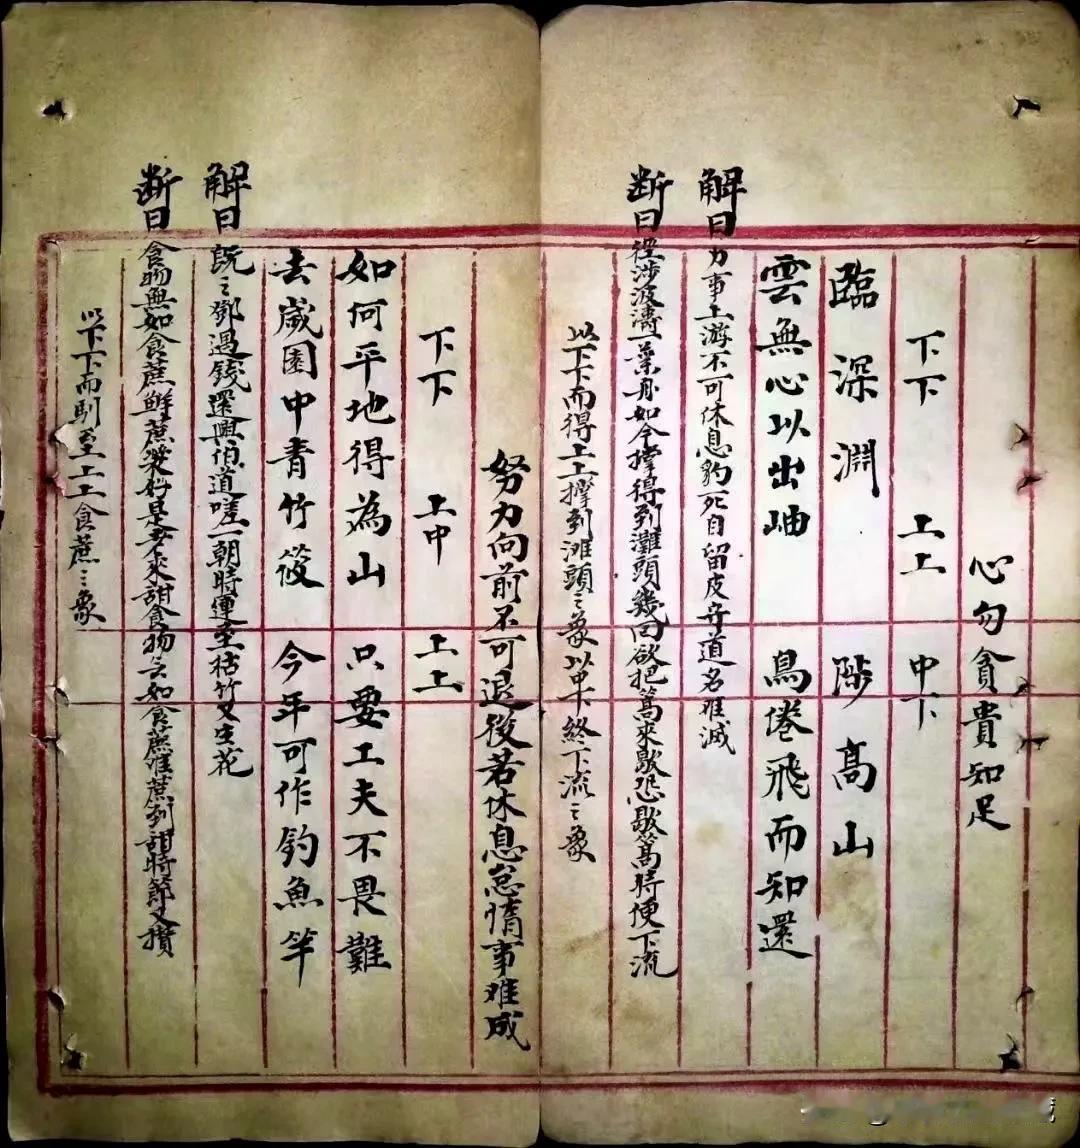 心勿貪貴知足
下下 上上 中下
臨深淵 陟高山
雲無心以出岫 鳥倦飛而知還
解曰力事上游不可休息豹死自留皮守道名难滅
断曰徑涉波濤一葉舟如今撑得到灘頭幾回欲把篙來歇恐歇篙時便下流
以下下而得上上撑到滩頭之象以中下終下流之象
努力向前不可退後若休息怠惰事难成
下下 上中 上上
如何平地得為山 只要工夫不畏難
去歲園中青竹筱 今年可作釣魚竿
解曰 既之鄧遇錢還與伯道嗟一朝時運至枯竹又生花
断曰食物無如食蔗鲜蔗裳妙是 來甜食物 如食蔗 蔗到甜時節又攢
以下下而馴至上上食蔗之象